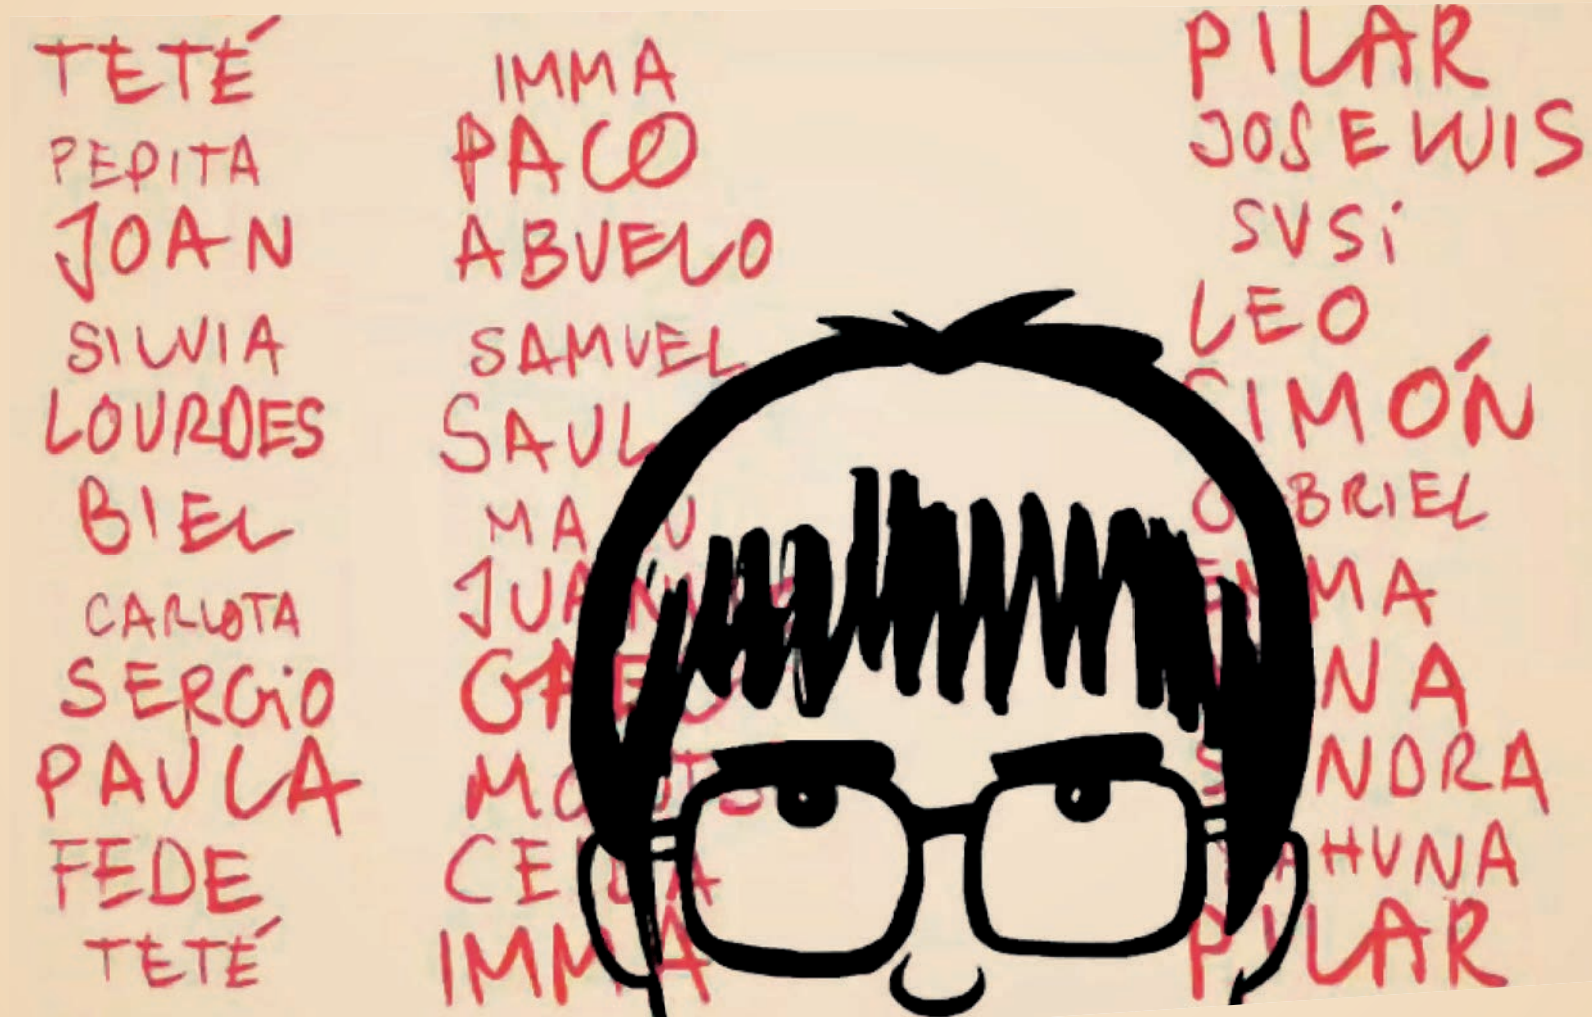 TETÉ
PEPITA
JOAN
SILVIA
LOURDES
BIEL
CARLOTA
SERGiO
PAULA
FEDE
TETÉ
IMMA
PACO
ABUELO
SAMUEL
SAUL
CELIA
IMMA
PILAR
JOSELUIS
SUSi
LEO
SIMÓN
GABRIEL
EMMA
SANDRA
KAHUNA
PILAR